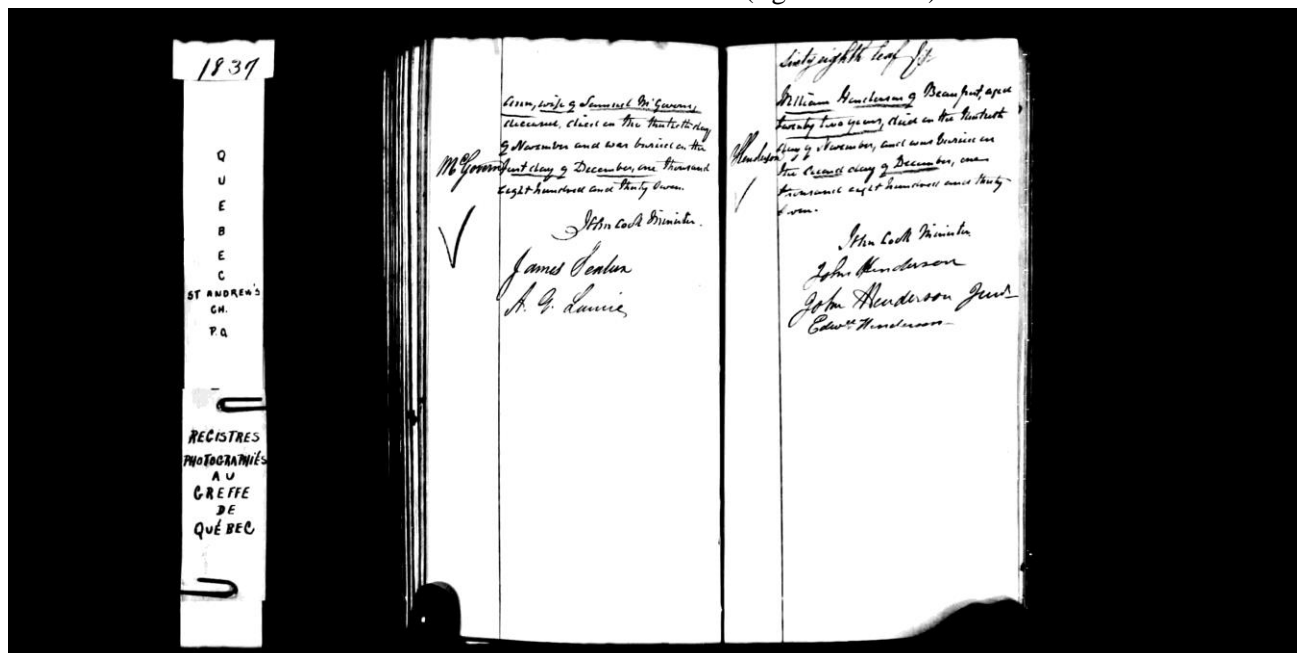 1837
QUEBEC
ST ANDREW'S
CH.
P.Q
REGISTRES
PHOTOGRAPHIÉS
AU
GREFFE
DE
QUÉBEC
Ann, wife of Samuel McGovern,
deceased, died on the thirtieth day
of November and was buried on the
first day of December, one thousand
eight hundred and thirty seven.
McGovern
John Cook Minister.
James
A. G.
Sixty eighth leaf
William Henderson of Beauport, aged
twenty two years, died on the thirtieth
day of November, and was buried on
the second day of December, one
thousand eight hundred and thirty
seven.
Henderson
John Cook Minister
John Henderson
John Henderson Junr
Edwd Henderson